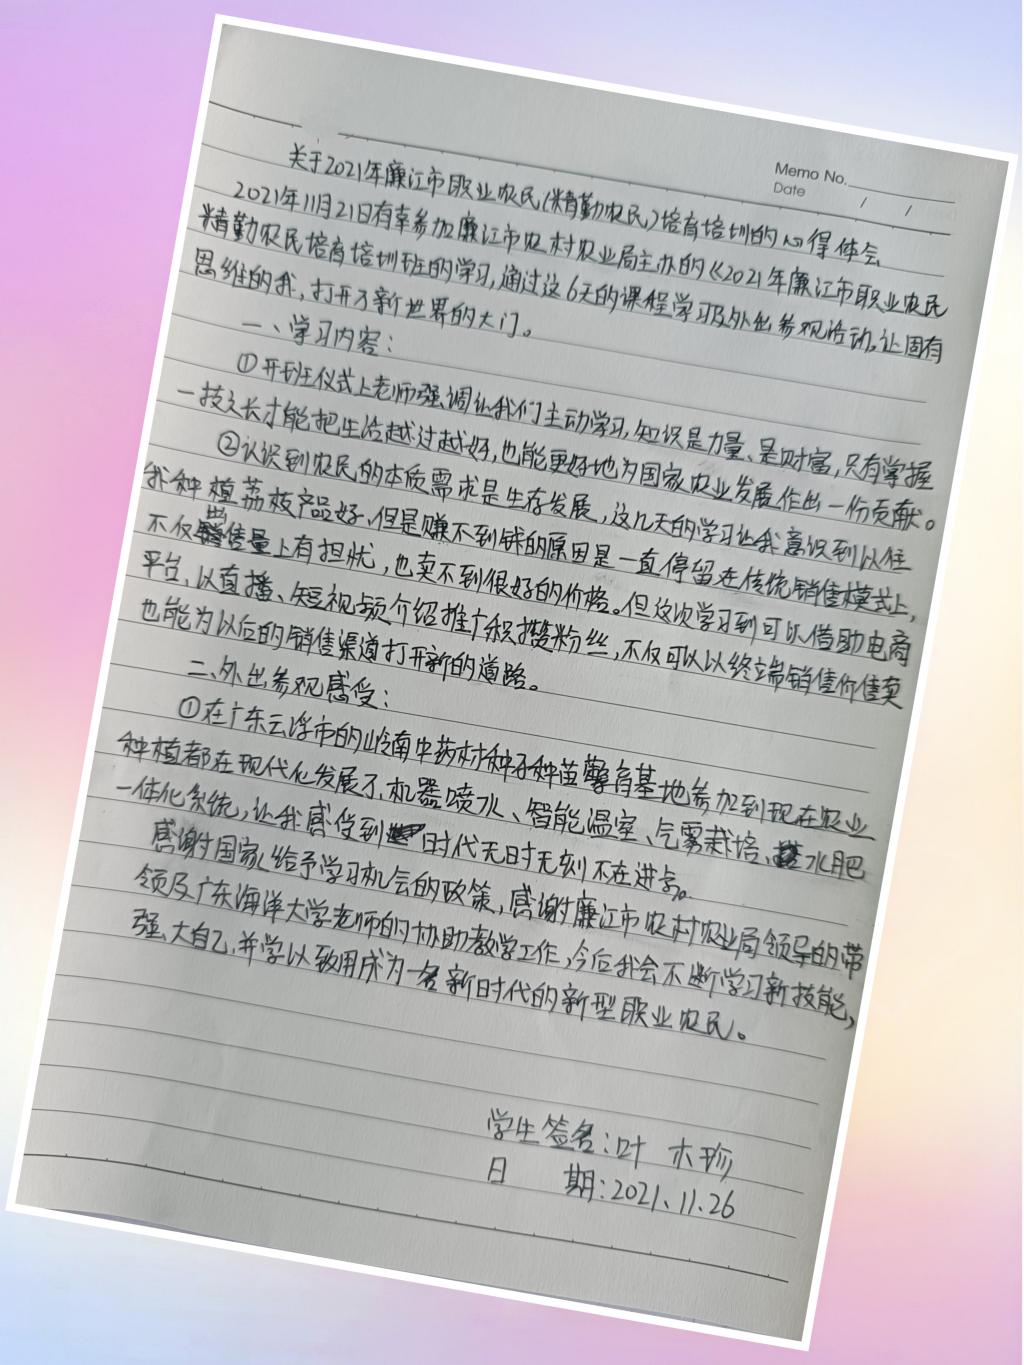 Memo No.
Date / /
关于2021年廉江市职业农民(精勤农民)培育培训的心得体会
2021年11月21日有幸参加廉江市农村农业局主办的《2021年廉江市职业农民
精勤农民培育培训班的学习,通过这6天的课程学习及外出参观活动,让固有
思维的我,打开了新世界的大门。
一、学习内容:
①开班仪式上老师强调让我们主动学习,知识是力量、是财富,只有掌握
一技之长才能把生活越过越好,也能更好地为国家农业发展作出一份贡献。
②认识到农民的本质需求是生存发展,这几天的学习让我意识到以往
我种植荔枝产品好,但是赚不到钱的原因是一直停留在传统销售模式上,
不仅销售量上有担忧,也卖不到很好的价格。但这次学习到可以借助电商
平台、以直播、短视频介绍推广积攒粉丝,不仅可以以终端销售价售卖
也能为以后的销售渠道打开新的道路。
二、外出参观感受:
①在广东云浮市的岭南中药材种子种苗繁育基地参加到现在农业
种植都在现代化发展了,机器喷水、智能温室、气雾栽培、水肥
一体化系统,让我感受到时代无时无刻不在进步。
感谢国家给予学习机会的政策,感谢廉江市农村农业局领导的带
领及广东海洋大学老师的协助教学工作,今后我会不断学习新技能,
强大自己,并学以致用成为一名新时代的新型职业农民。
学生签名:叶木珍
日 期:2021.11.26